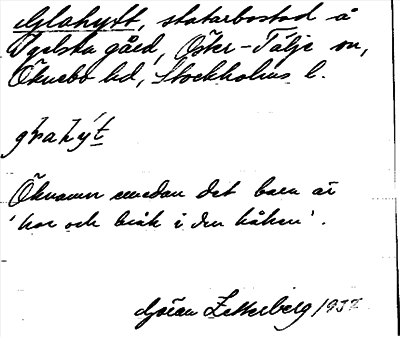 Glahytt, statarbostad å
gård, Öster-Tälje sn,
Öknebo hd, Stockholms l.
Öknamn emedan det bara är
'hor och bråk i den håhen'.
Göran Zetterberg 1937